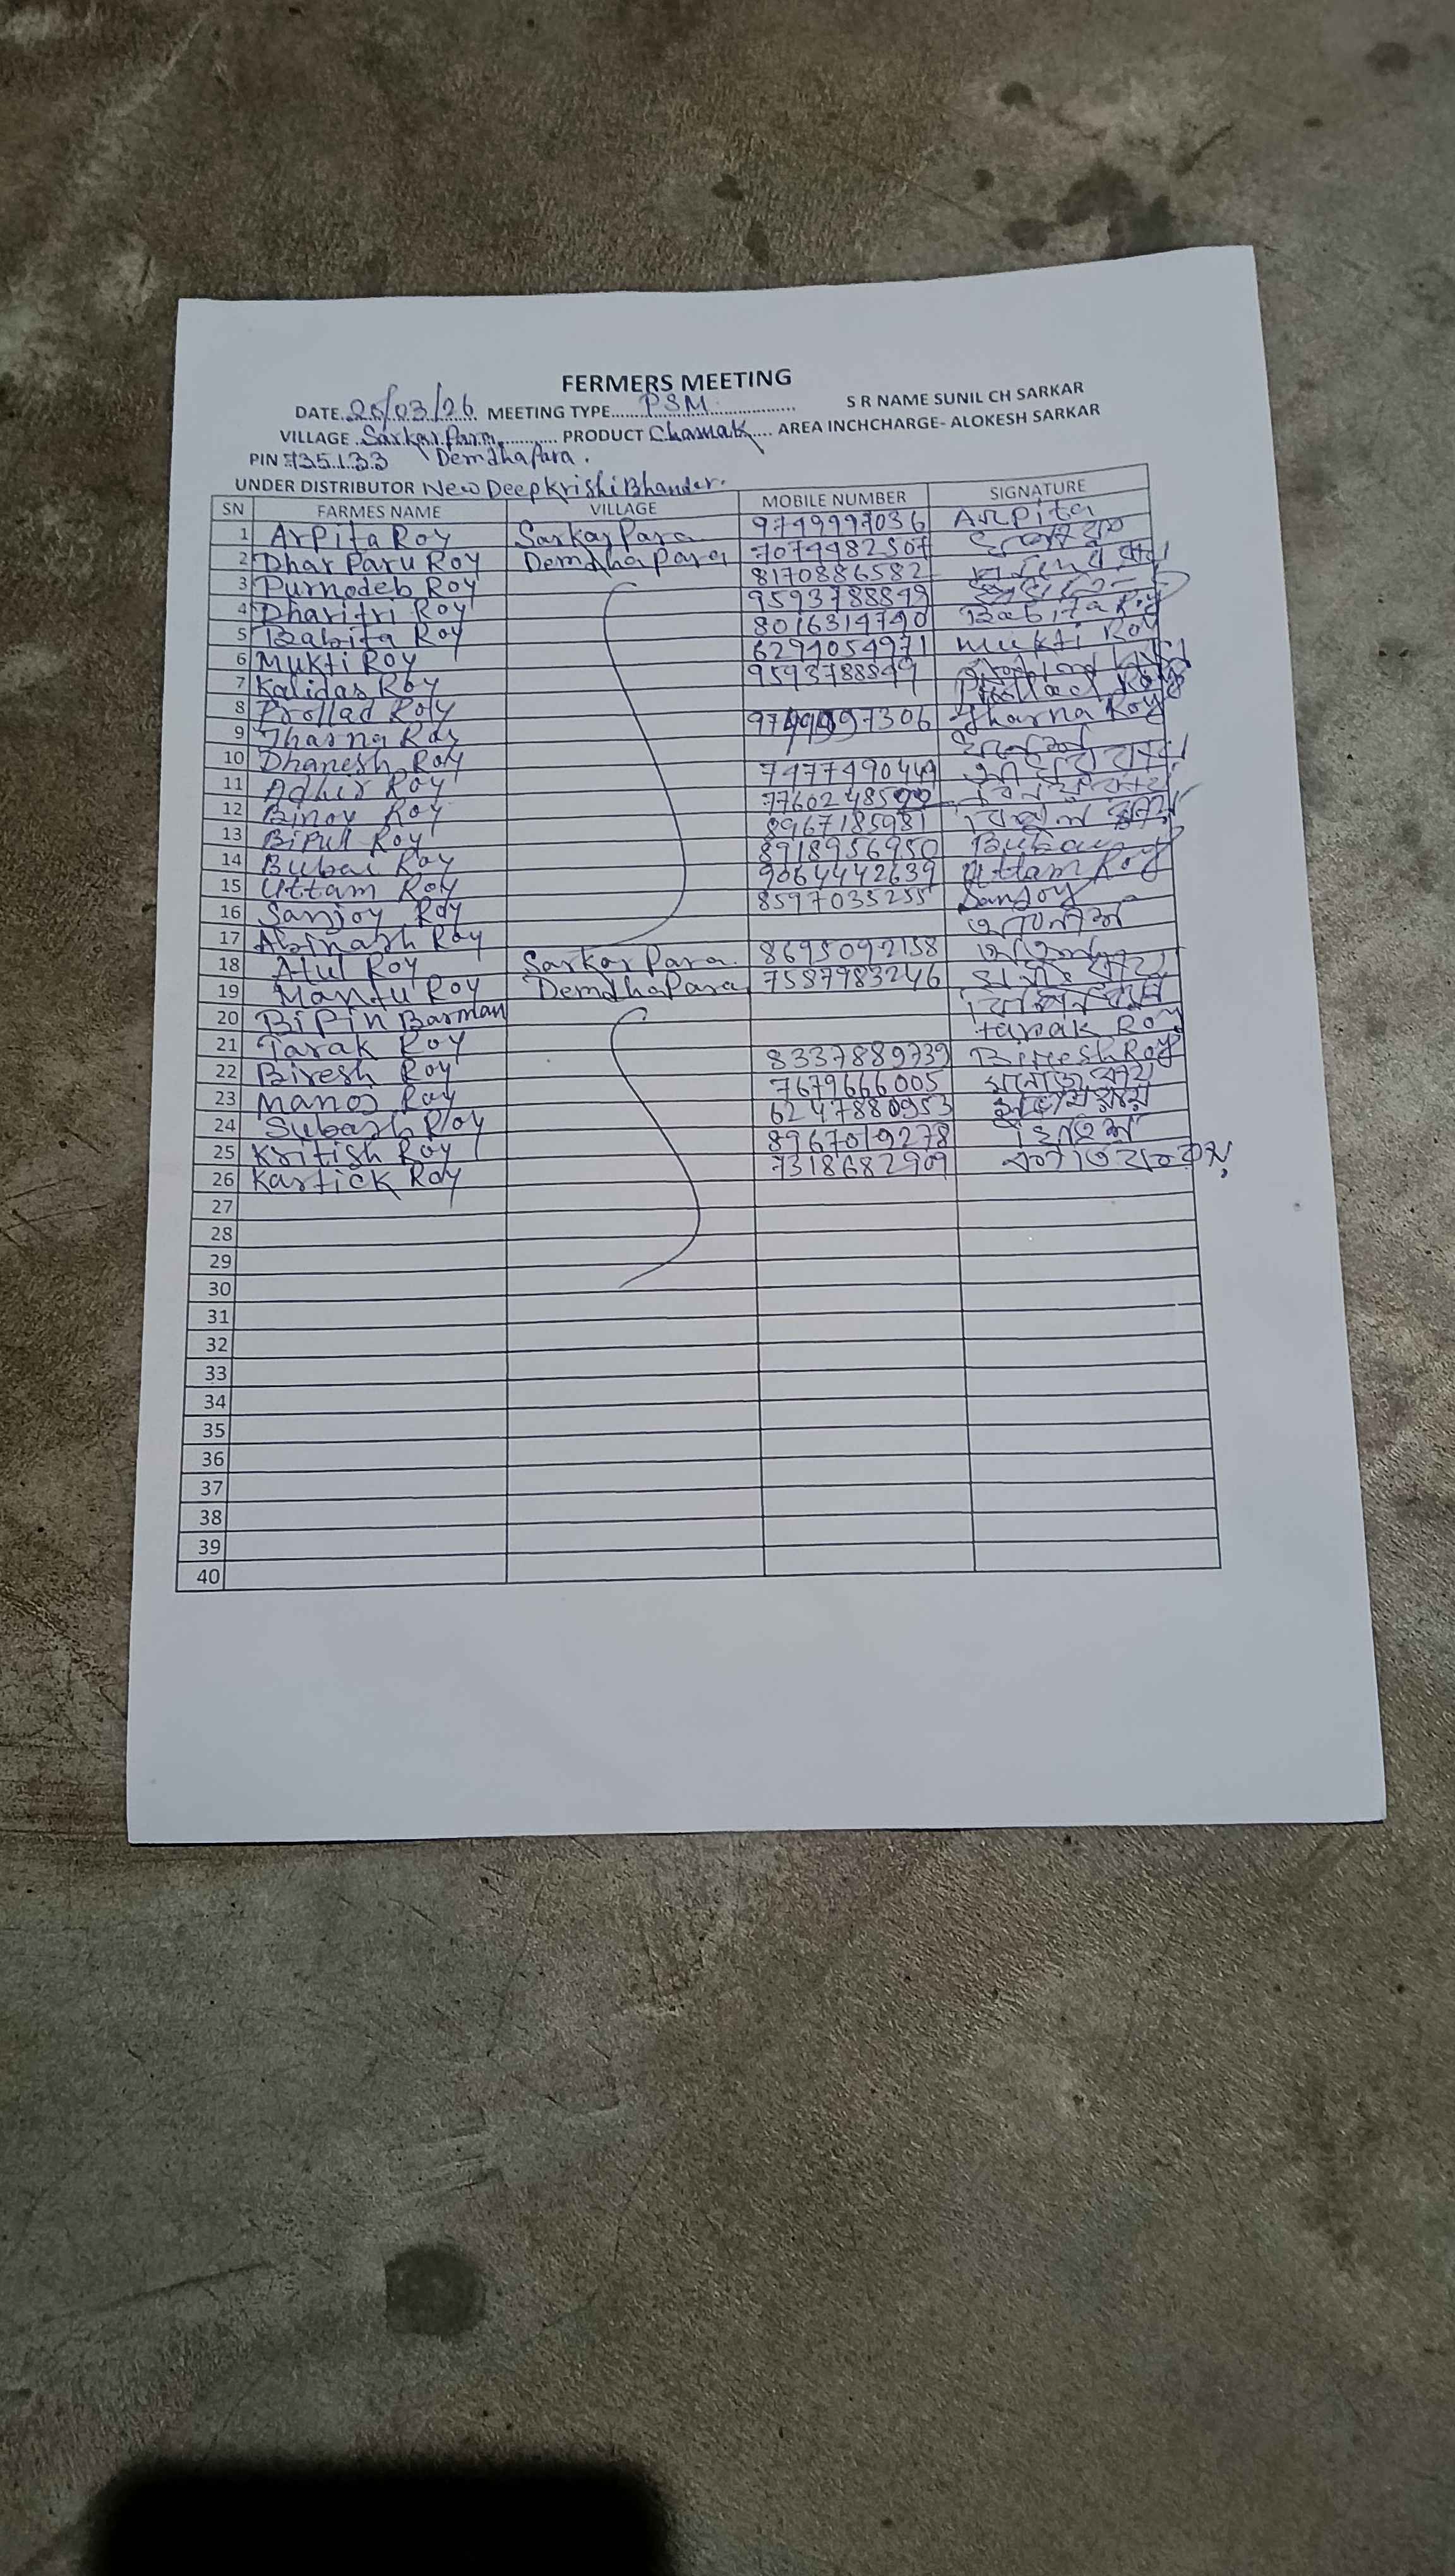 FERMERS MEETING
DATE 25/03/26 MEETING TYPE PSM S R NAME SUNIL CH SARKAR
VILLAGE Sarkar Para PRODUCT Chamak AREA INCHCHARGE- ALOKESH SARKAR
PIN 735133 Demdhapara.
UNDER DISTRIBUTOR New Deep Krishi Bhander.
SN FARMES NAME VILLAGE MOBILE NUMBER SIGNATURE
1 Arpita Roy Sarkar Para 9749997036 Arpita
2 Dhar Paru Roy Demdhapara 7079982507
3 Purnodeb Roy 8170886582
4 Dharitri Roy 9593788849
5 Babita Roy 8016314740 Babita Roy
6 Mukti Roy 6294054971 Mukti Roy
7 Kalidas Roy 9593788849
8 Prollad Roy Prollad Roy
9 Jharna Roy Jharna Roy
10 Dhanesh Roy
11 Adhir Roy 7477490449
12 Binoy Roy
13 Bipul Roy 8967185981
14 Bubai Roy 8918956950
15 Uttam Roy 9064442639 Uttam Roy
16 Sanjoy Roy 8597035255 Sanjoy
17 Abinash Roy
18 Atul Roy Sarkar Para 8695092158
19 Mantu Roy Demdhapara 7587983246
20 Bipin Barman
21 Tarak Roy tarak Roy
22 Biresh Roy 8337889739 Biresh Roy
23 Manoj Roy 7679666005 মনোজ রায়
24 Subash Roy 6247880953
25 Kritish Roy 8967019278
26 Kartick Roy 7318682909
27
28
29
30
31
32
33
34
35
36
37
38
39
40